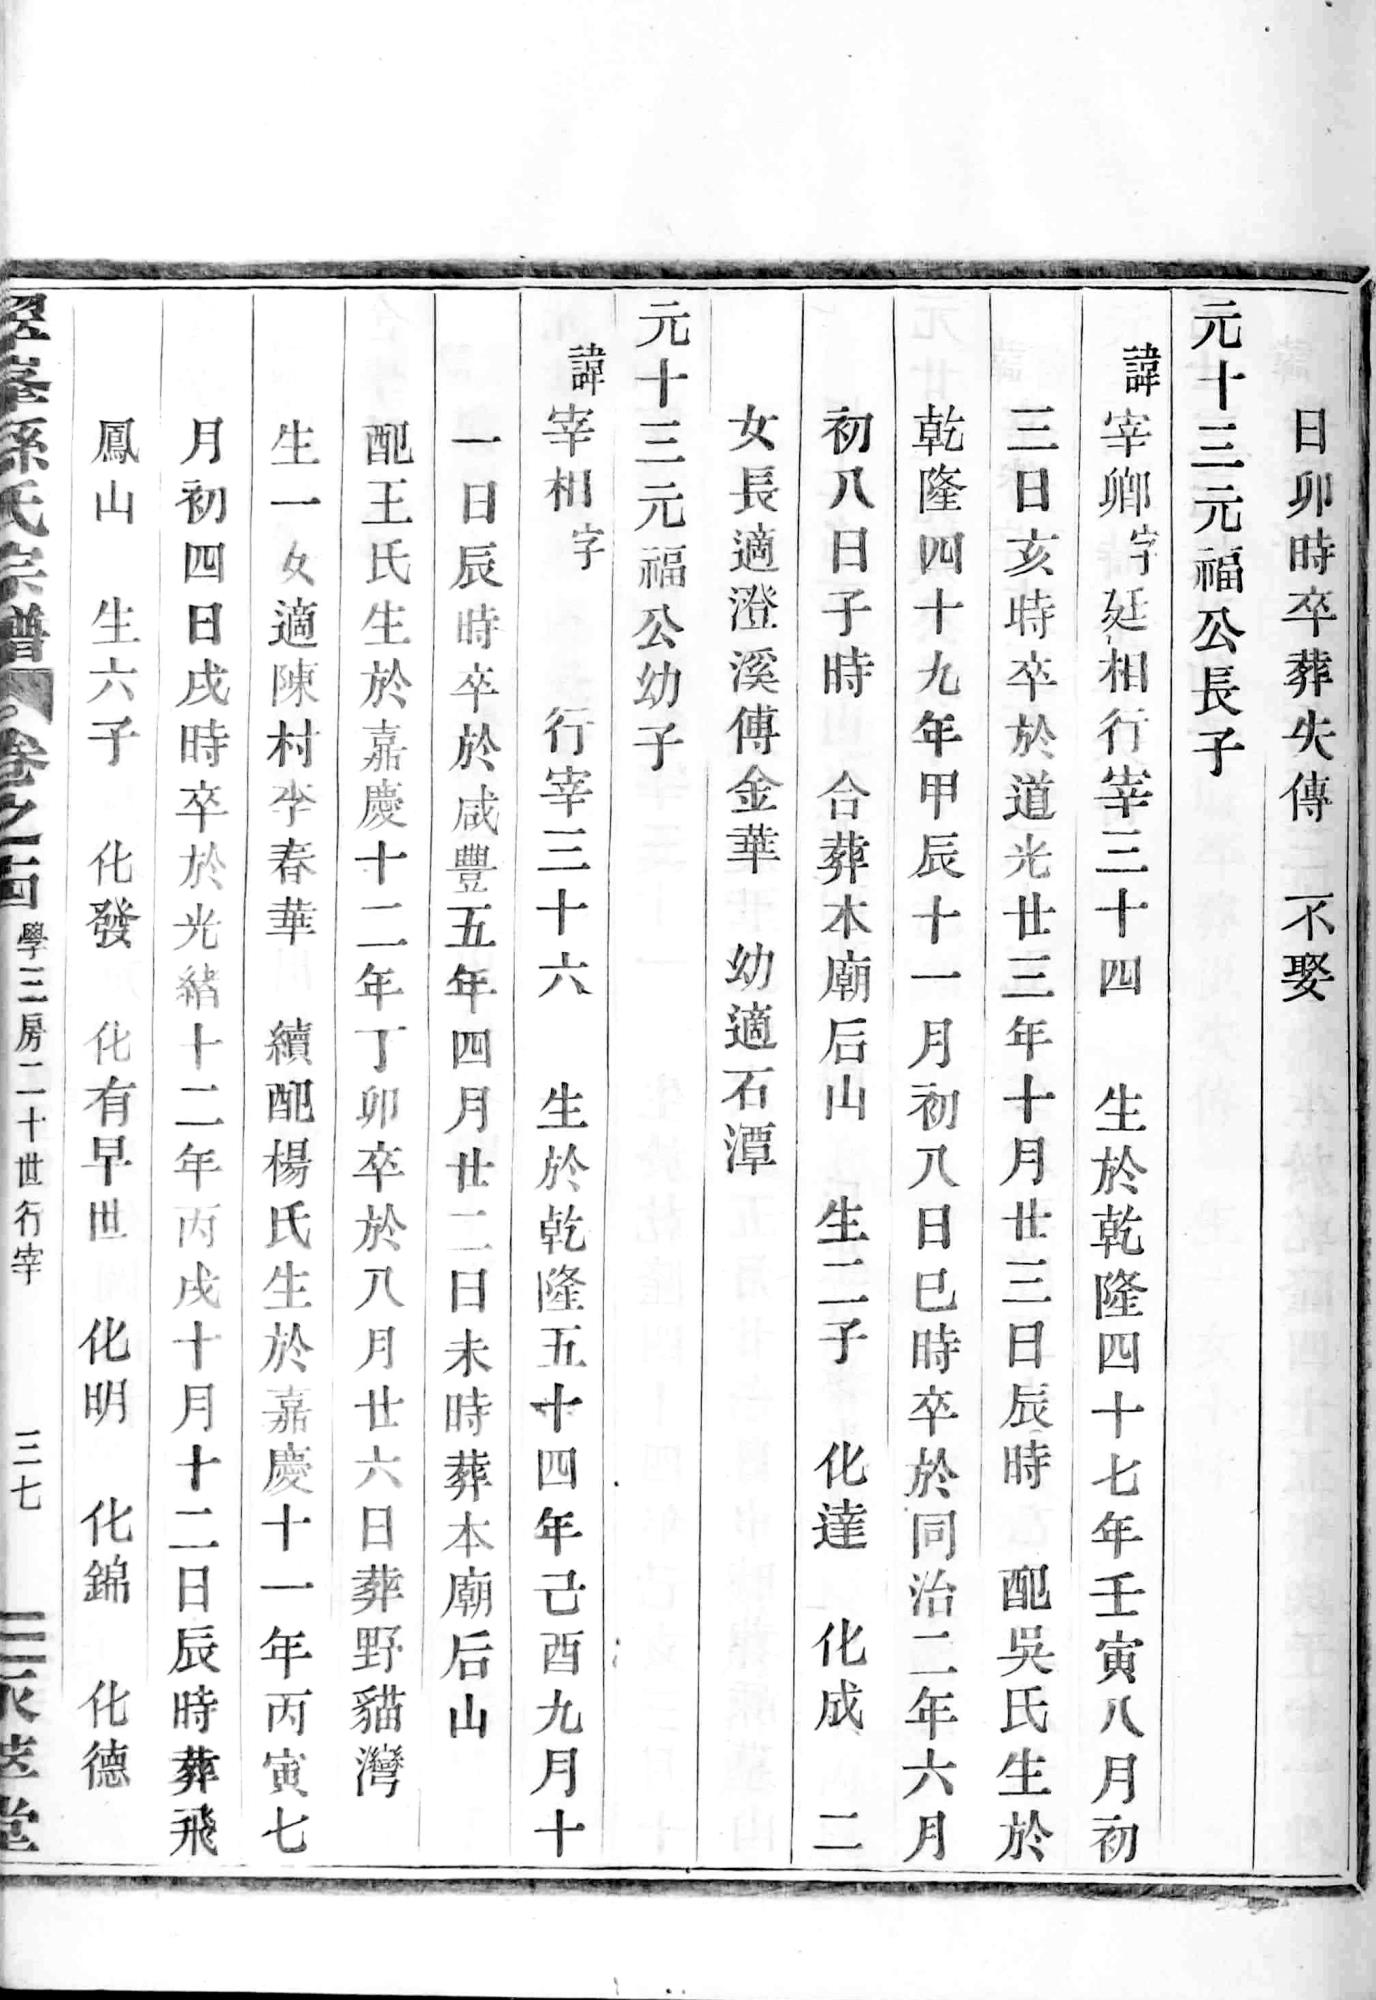 日卯時卒葬失傳　不娶
元十三元福公長子
諱宰鄉字廷相行宰三十四　生於乾隆四十七年壬寅八月初
三日亥時卒於道光廿三年十月廿三日辰時　配吳氏生於
乾隆四十九年甲辰十一月初八日巳時卒於同治二年六月
初八日子時　合葬本廟后山　生二子　化達　化成　二
女長適澄溪傅金華　幼適石潭
元十三元福公幼子
諱宰相字　　行宰三十六　生於乾隆五十四年己酉九月十
一日辰時卒於咸豐五年四月廿二日未時葬本廟后山
配王氏生於嘉慶十二年丁卯卒於八月廿六日葬野貓灣
生一女適陳村李春華　續配楊氏生於嘉慶十一年丙寅七
月初四日戌時卒於光緒十二年丙戌十月十二日辰時葬飛
鳳山　生六子　化發　化有早世　化明　化錦　化德
峯孫氏宗譜　卷之十四　學三房二十世行宰　三七　堂